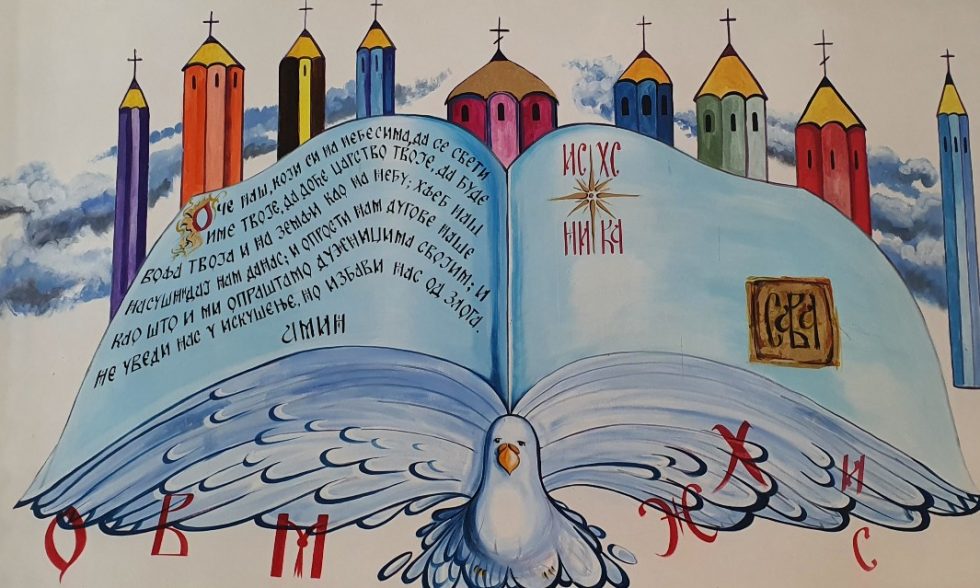 ОЧЕ НАШ, КОЈИ СИ НА НЕБЕСИМА, ДА СЕ СВЕТИ
ИМЕ ТВОЈЕ, ДА ДОЂЕ ЦАРСТВО ТВОЈЕ, ДА БУДЕ
ВОЉА ТВОЈА И НА ЗЕМЉИ КАО НА НЕБУ; ХЉЕБ НАШ
НАСУШНИ ДАЈ НАМ ДАНАС; И ОПРОСТИ НАМ ДУГОВЕ НАШЕ
КАО ШТО И МИ ОПРАШТАМО ДУЖНИЦИМА СВОЈИМ; И
НЕ УВЕДИ НАС У ИСКУШЕЊЕ, НО ИЗБАВИ НАС ОД ЗЛОГА.
АМИН
ИС ХС
НИ КА
САВА
О В М Ж Х И С